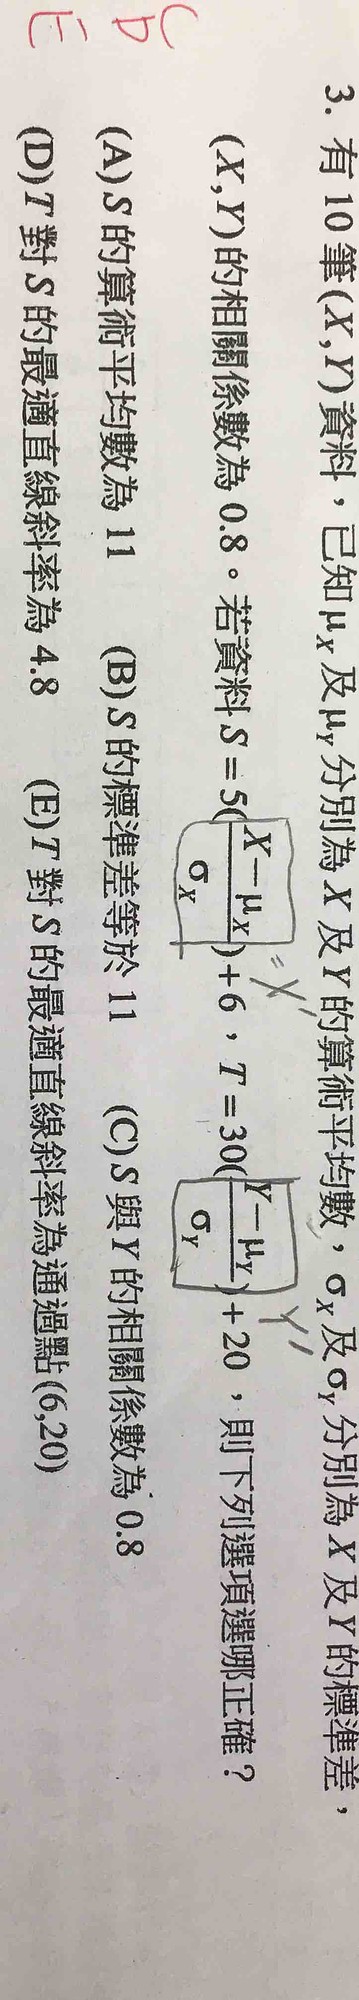 3. 有 10 筆(X,Y)資料，已知μ_X 及μ_Y 分別為 X 及Y 的算術平均數，σ_X 及σ_Y 分別為 X 及Y 的標準差，
(X,Y)的相關係數為 0.8。若資料S = 5(\frac{X-μ_X}{σ_X})+6，T = 30(\frac{Y-μ_Y}{σ_Y})+20，則下列選項選哪正確？
= X' Y'
(A)S 的算術平均數為 11 (B)S 的標準差等於 11 (C)S 與Y 的相關係數為 0.8
(D)T 對S 的最適直線斜率為 4.8 (E)T 對S 的最適直線斜率為通過點(6,20)
CD
E